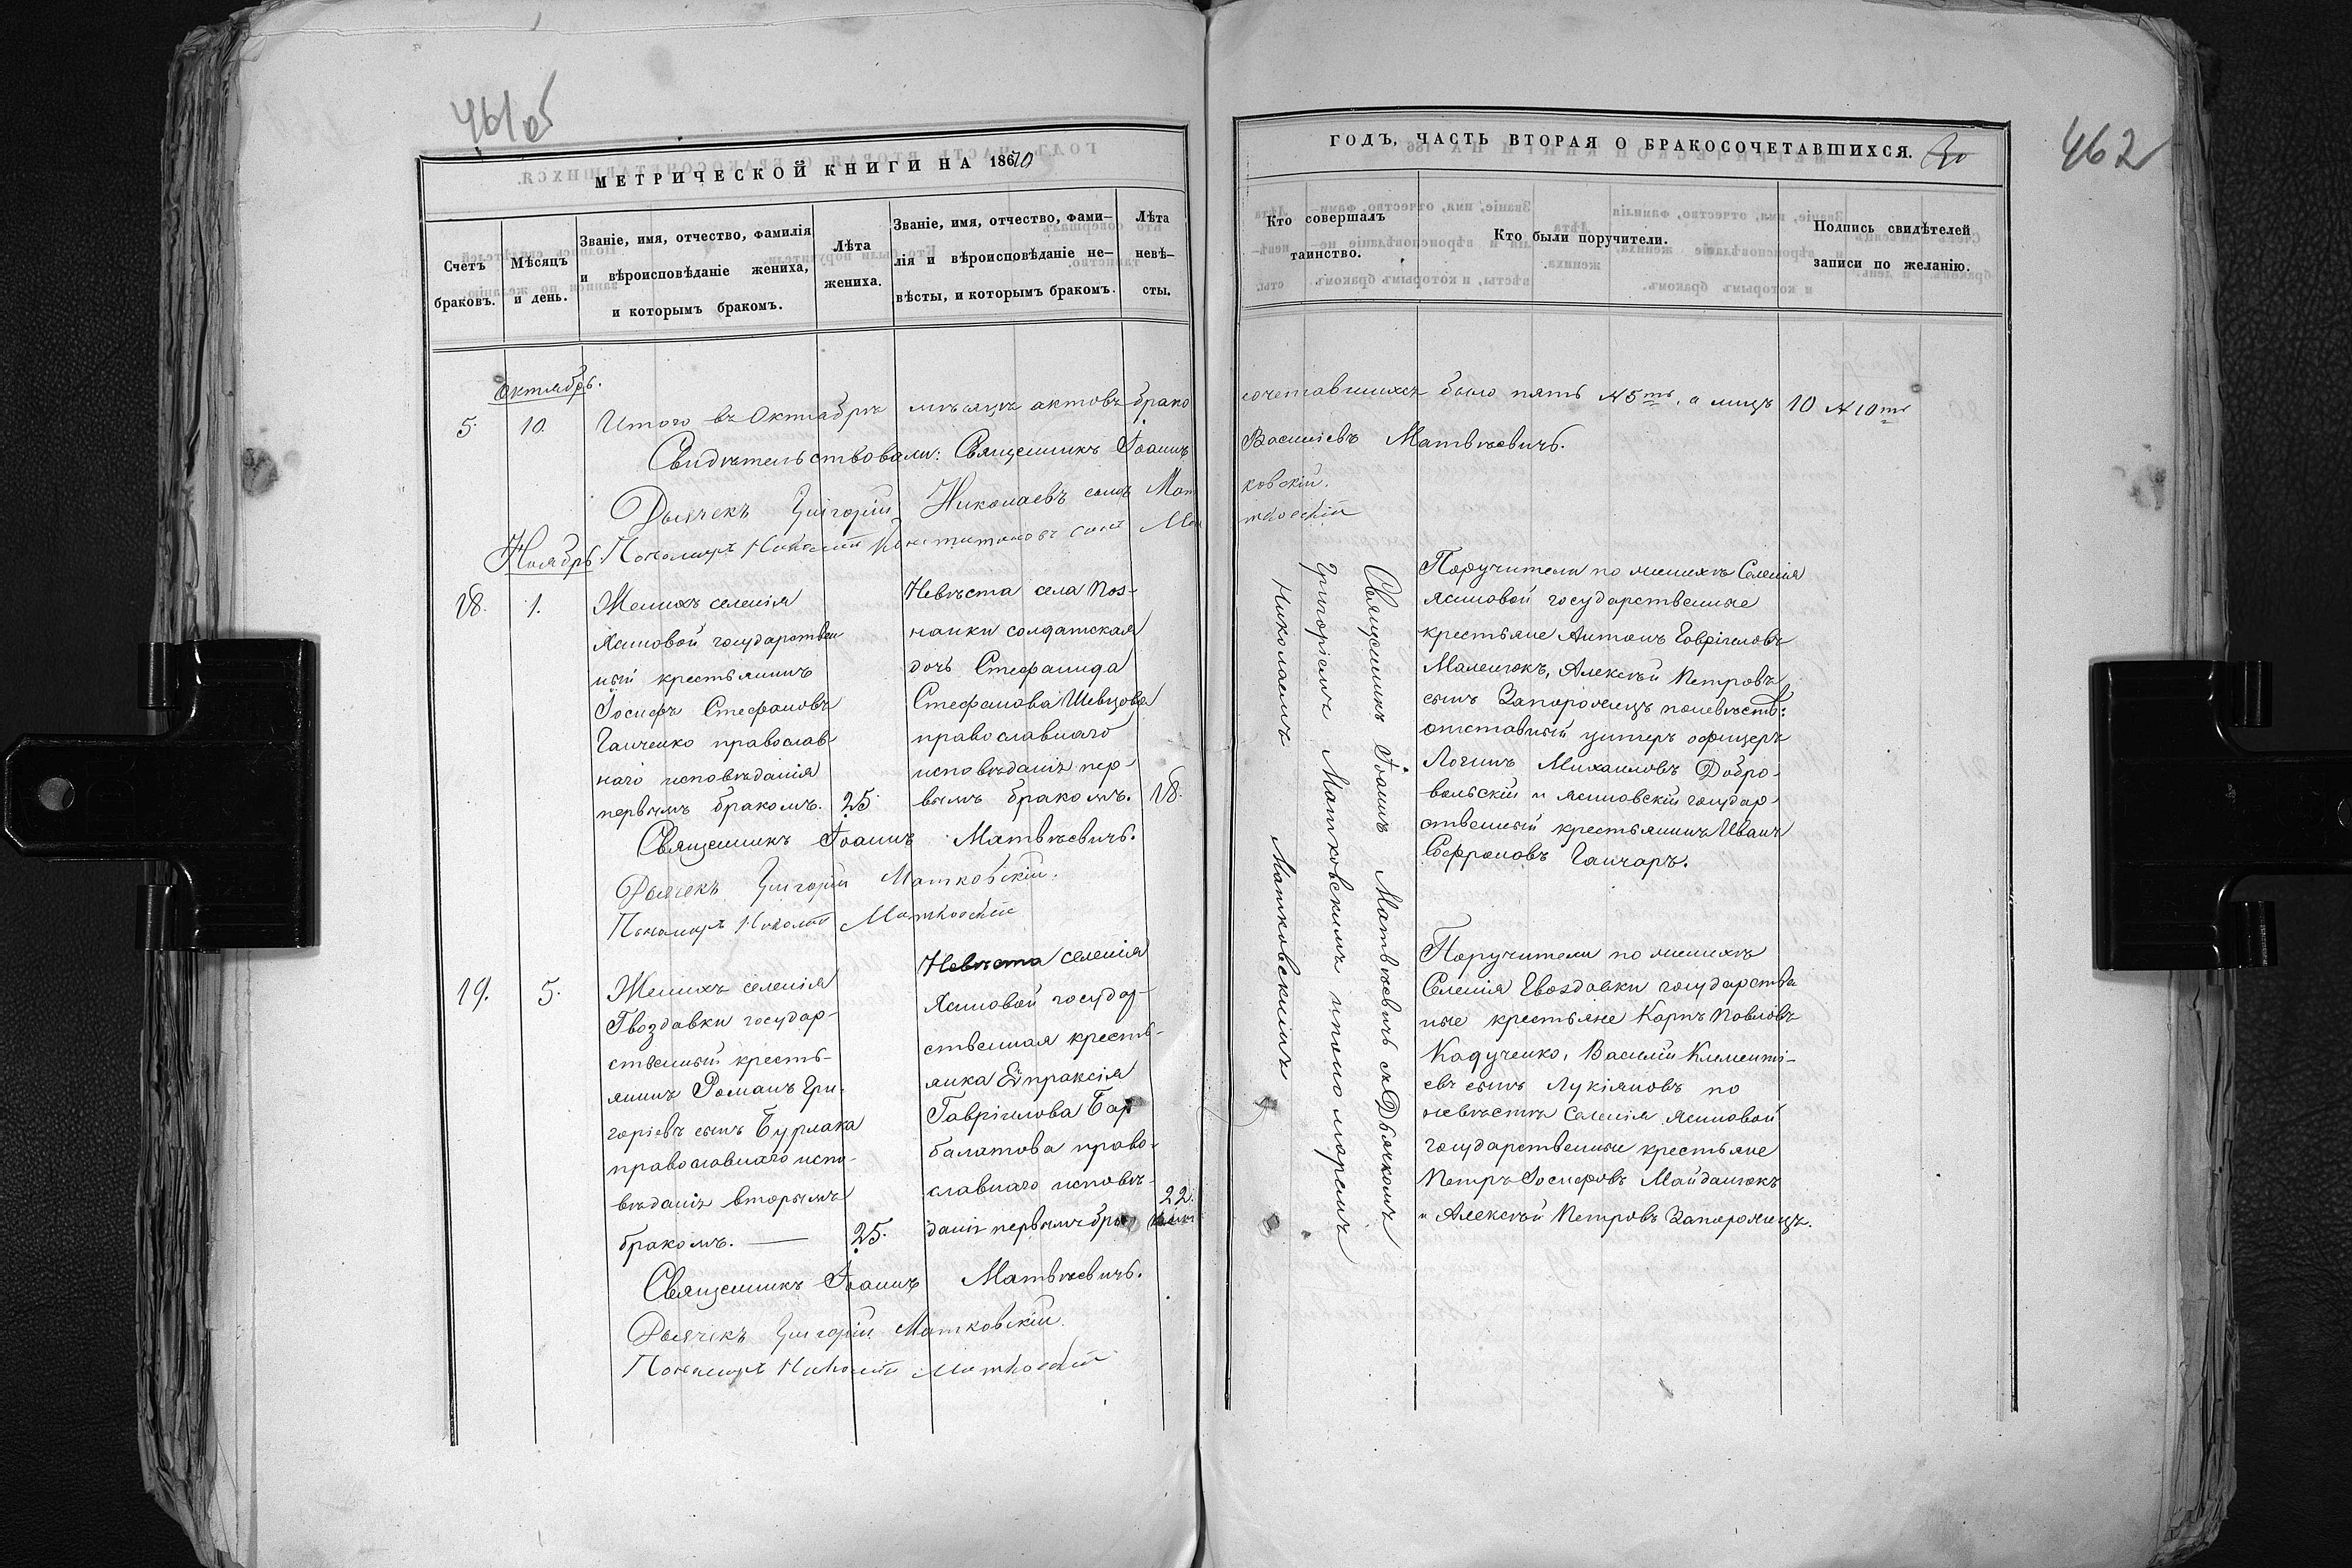 461об
МЕТРИЧЕСКОЙ КНИГИ НА 1870
Счетъ
браковъ.
Мѣсяцъ
и день.
Званіе, имя, отчество, фамилія
и вѣроисповѣданіе жениха,
и которымъ бракомъ.
Лѣта
жениха.
Званіе, имя, отчество, фами-
лія и вѣроисповѣданіе не-
вѣсты, и которымъ бракомъ.
Лѣта
невѣ-
сты.
Октябрь.
5. 10. Итого въ Октябрѣ мѣсяцѣ актовъ брако
Свидѣтельствовали: Священникъ Іоаннъ
Дьячекъ Григорій Николаевъ сынъ Мат
Ноябрь. Пономарь Николай Константиновъ сынъ Мат
18. 1.
Женихъ селенія
Ясиновой государствен
ный крестьянинъ
Іосифъ Стефановъ
Ганченко православ-
наго исповѣданія
первымъ бракомъ. 25.
Невѣста села Поз-
нанки солдатская
дочь Стефанида
Стефанова Шевцова
православнаго
исповѣданія пер-
вымъ бракомъ. 18.
Священникъ Іоаннъ Матвѣевичъ.
Дьячекъ Григорій Матковскій.
Пономарь Николай Матковскій
19. 5.
Женихъ селенія
Гвоздавки государ-
ственный кресть-
янинъ Романъ Гри-
горіевъ сынъ Бурлака
православнаго испо-
вѣданія вторымъ
бракомъ. — 25.
Невѣста селенія
Ясиновой государ-
ственная кресть-
янка Евпраксія
Гавріилова Бар
балатова право-
славнаго исповѣ-
данія первымъ бра 22.
Священникъ Іоаннъ Матвѣевичъ.
Дьячекъ Григорій Матковскій.
Пономарь Николай Матковскій
ГОДЪ, ЧАСТЬ ВТОРАЯ О БРАКОСОЧЕТАВШИХСЯ.
462
Кто совершалъ
таинство.
Кто были поручители.
Подпись свидѣтелей
записи по желанію.
сочетавшихся было пять №5ть, а лицъ 10 №10ть
Василіевъ Матвѣевичъ.
ковскій.
тковскій
Священникъ Іоаннъ Матвѣевичъ съ Дьячкомъ
Григоріемъ Матковскимъ и пономаремъ
Николаемъ Матковскимъ
Поручители по женихѣ Селенія
Ясиновой государственные
крестьяне Антонъ Гавріиловъ
Маленюкъ, Алексѣй Петровъ
сынъ Запорожецъ по невѣстѣ:
отставный унтеръ офицеръ
Логинъ Михаиловъ Добро-
вольскій и ясиновскій государ-
ственный крестьянинъ Иванъ
Софроновъ Ганчаръ.
Поручители по женихѣ
Селенія Гвоздавки государствен
ные крестьяне Карпъ Павловъ
Кадученко, Василій Клименті-
евъ сынъ Лукіяновъ по
невѣстѣ Селенія Ясиновой
государственные крестьяне
Петръ Іосифовъ Майданюкъ
и Алексѣй Петровъ Запорожецъ.